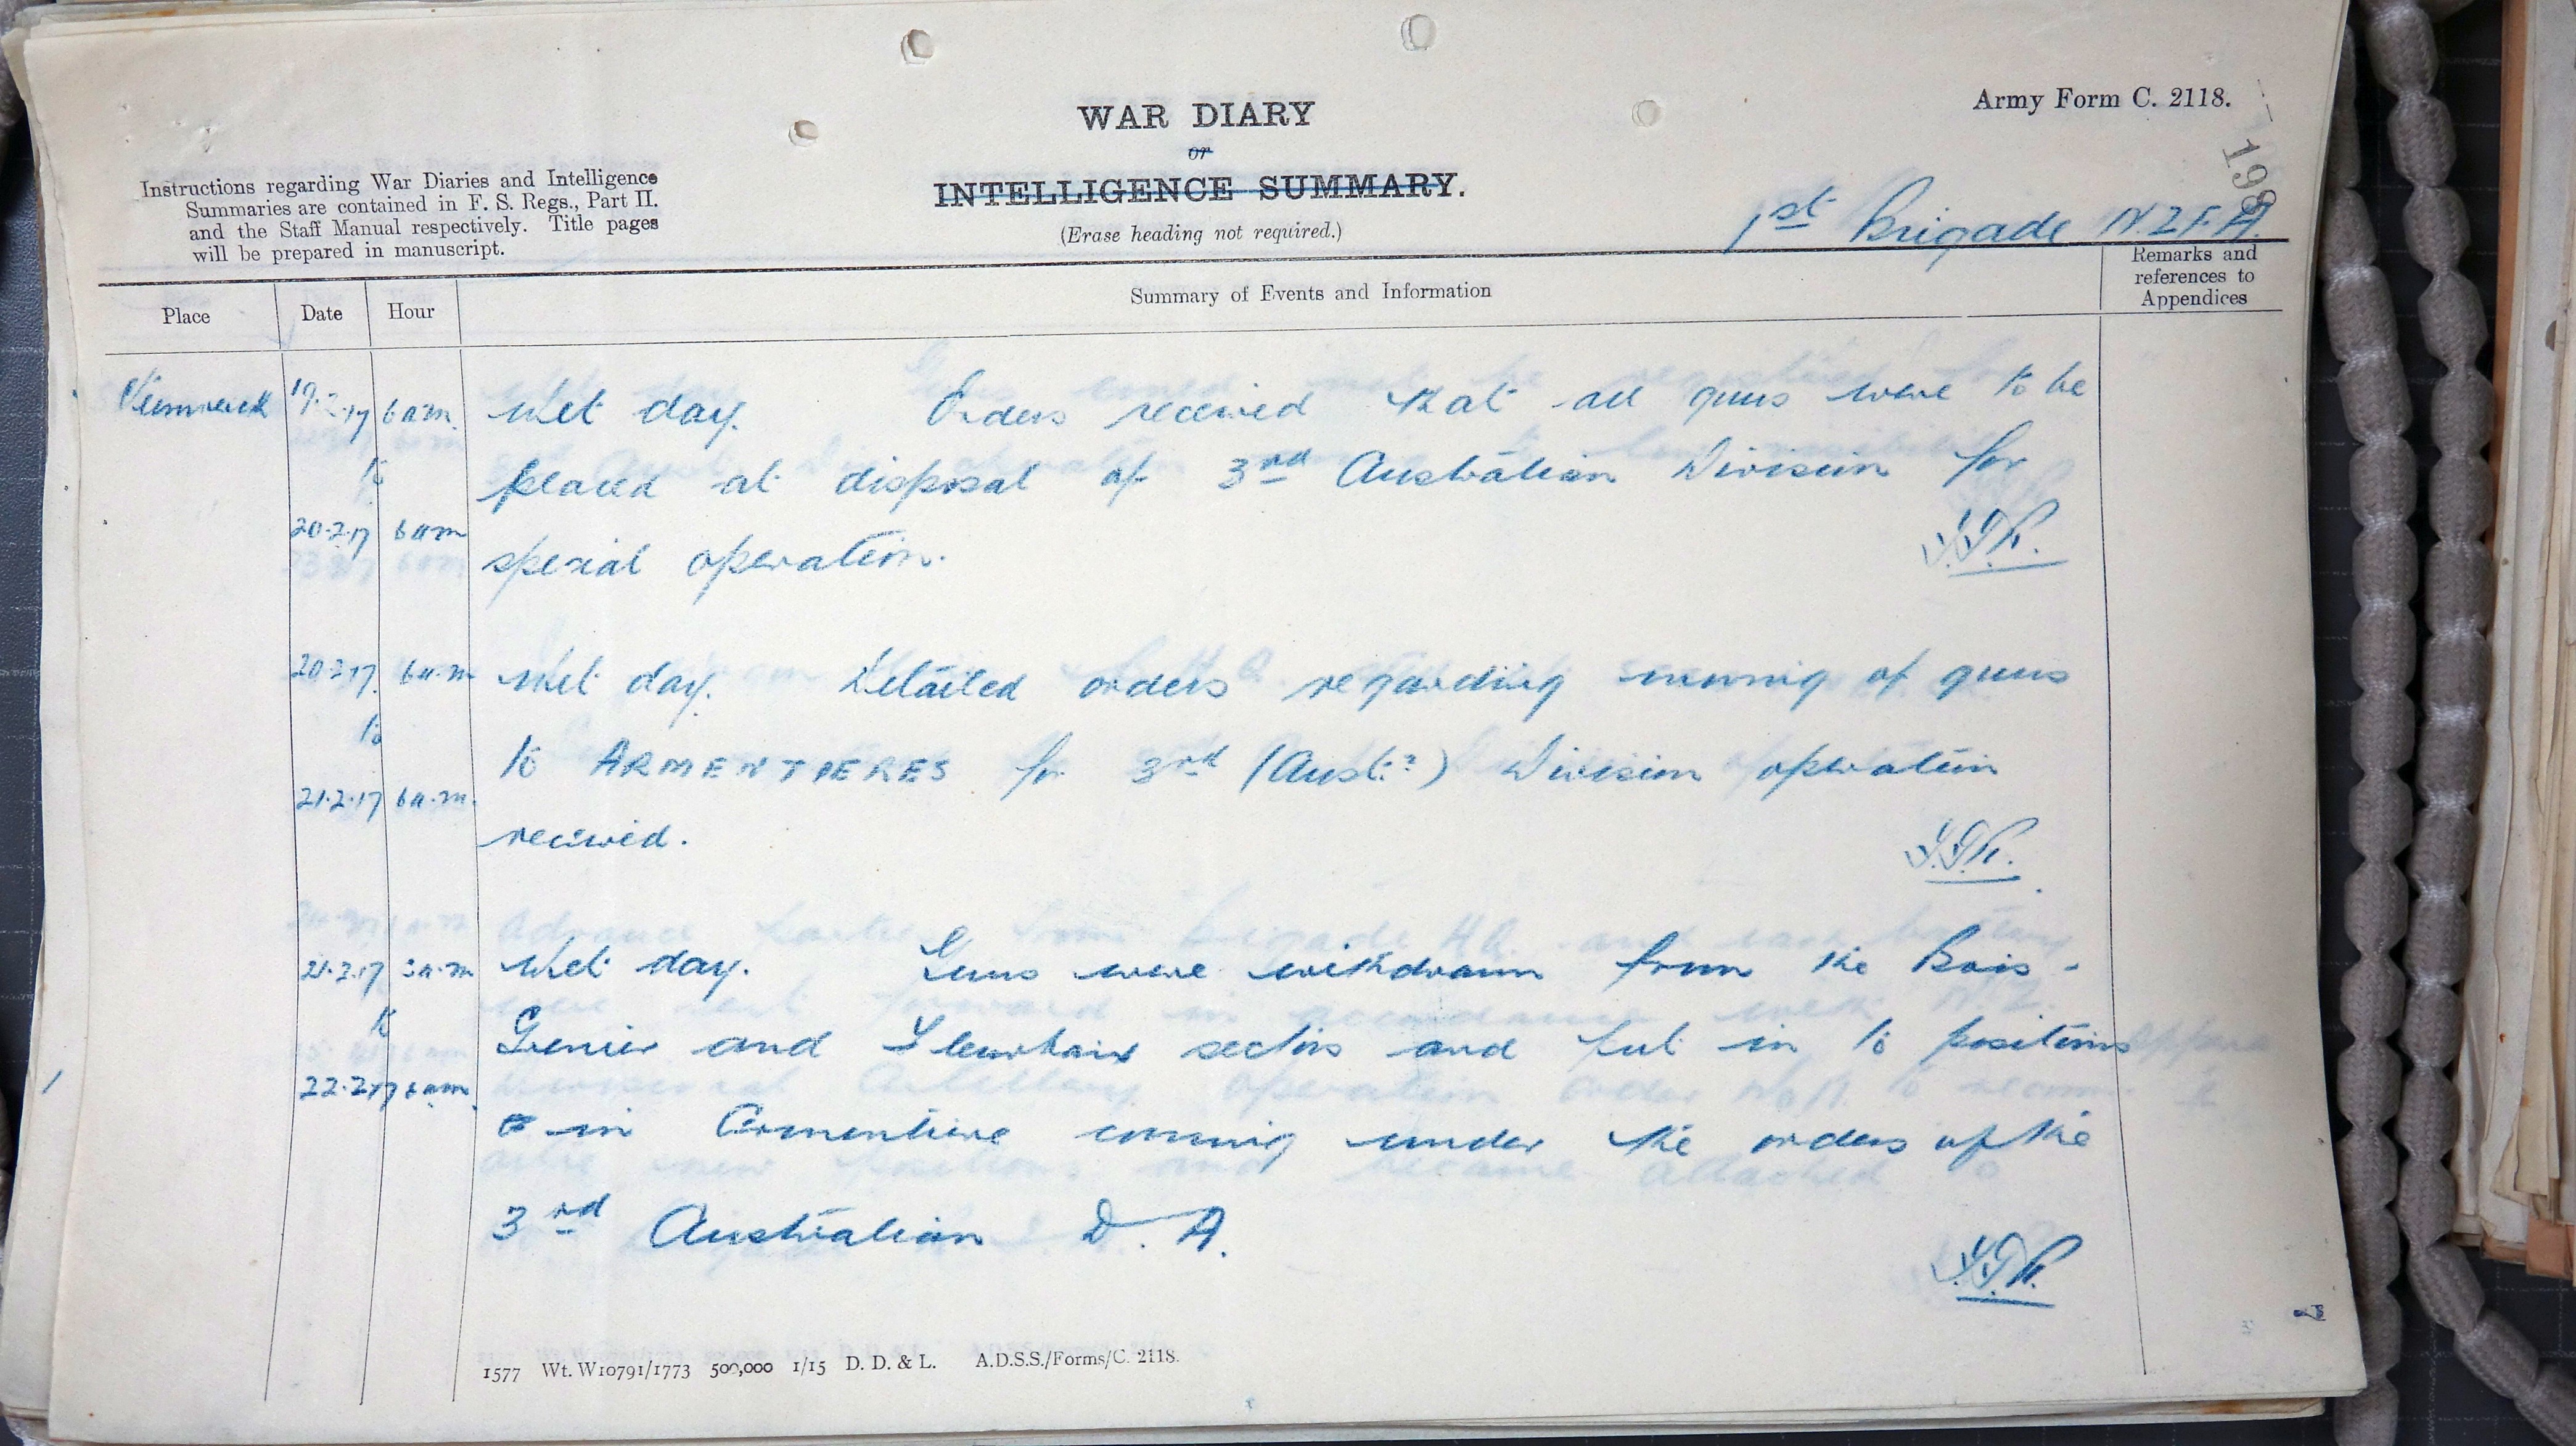 Army Form C. 2118.
WAR DIARY
or
INTELLIGENCE SUMMARY.
(Erase heading not required.)
Instructions regarding War Diaries and Intelligence
Summaries are contained in F. S. Regs., Part II.
and the Staff Manual respectively. Title pages
will be prepared in manuscript.
198
1st Brigade N.Z.F.A.
Place Date Hour Summary of Events and Information Remarks and
references to
Appendices
19.2.17 6am. Wet day. Orders received that all guns were to be
to placed at disposal of 3rd Australian Division for
20.2.17 6am special operation.
20.2.17. 6a.m Wet day. Detailed orders regarding moving of guns
to
to ARMENTIERES for 3rd (Austn) Division operation
21.2.17 6a.m. received.
21.2.17 a.m Wet day. Guns were withdrawn from the Bois-
to Grenier and Fleurbaix sectors and put in to positions
22.2.17 6am. in Armentiere coming under the orders of the
3rd Australian D.A.
1577 Wt. W10791/1773 500,000 1/15 D. D. & L. A.D.S.S./Forms/C. 2118.